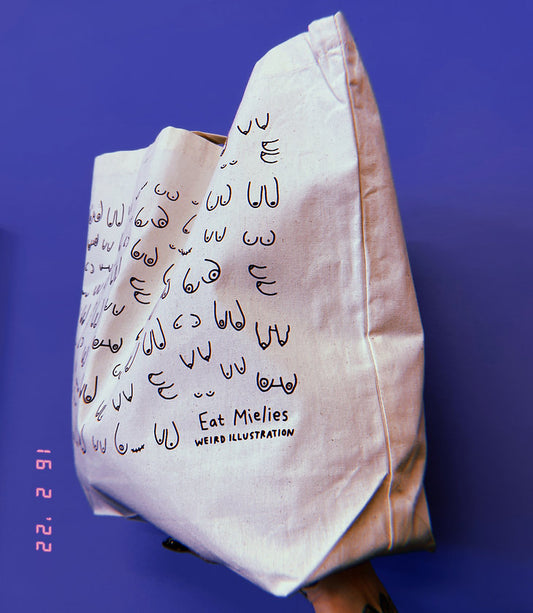 Eat Mielies
WEIRD ILLUSTRATION
22. 2 91